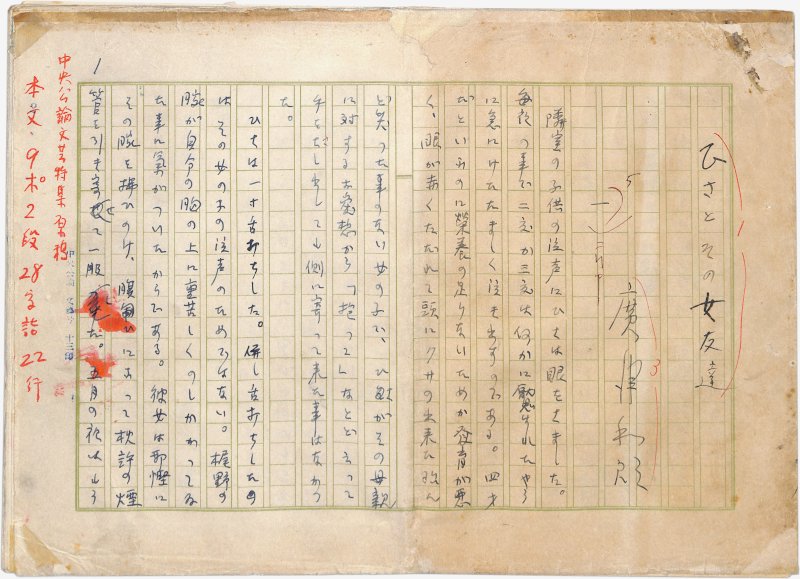 ひさとその女友達
廣津和郎
隣室の子供の泣声にひさは眼をさました。
毎夜の事で二度か三度は何かに
に急にけたたましく泣き出すのである。四才
だといふのに榮養の足りないためか發育が悪
く、眼が赤くただれて頭にクサの出来た
ど笑つた事のない女の子で、ひさがその母親
に對するお愛想から「抱つこ」などと云つて
手をさし出しても側に寄つて来た事はなかつ
た。
ひさは一寸舌打ちした。併し舌打ちしたの
はその女の子の泣声のためではない。梶野の
腕が自分の胸の上に重苦しくのしかかつてゐ
た事に氣がついたからである。彼女は邪慳に
その腕を拂ひのけ、腹匐ひになつて枕許の煙
管を引き寄せて一服
た。五月の
1
中央公論文芸特集原稿
本文、9ポ2段28字詰22行